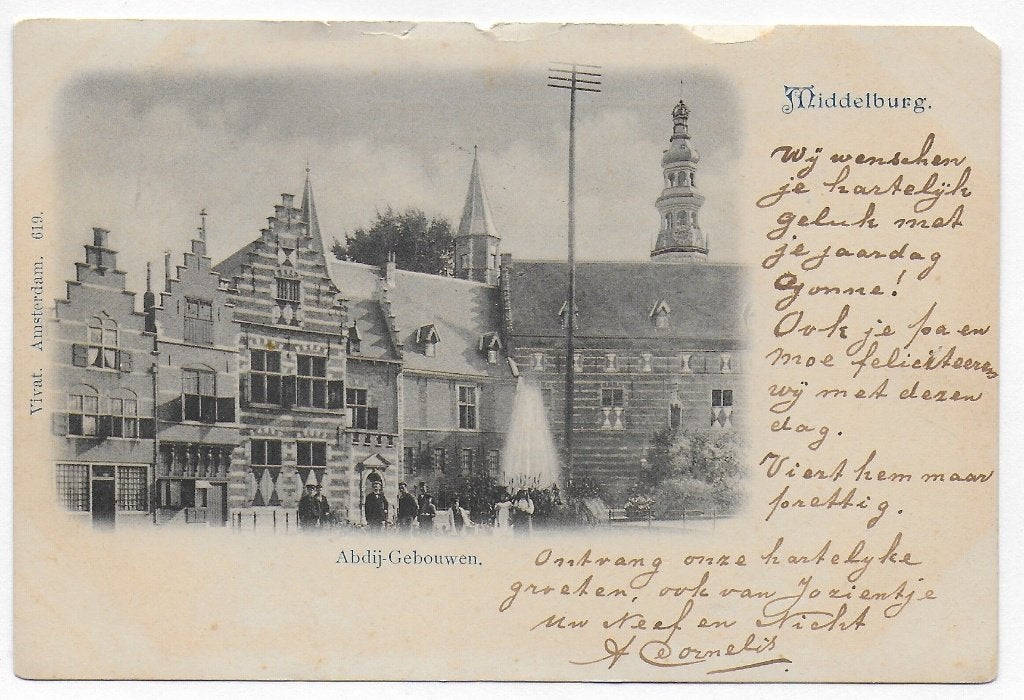 Middelburg.
Wij wenschen
je hartelijk
geluk met
je jaardag
Gonne!
Ook je pa en
moe feliciteeren
wij met dezen
dag.
Viert hem maar
prettig.
Vivat. Amsterdam. 619.
Abdij-Gebouwen.
Ontvang onze hartelyke
groeten, ook van Jozientje
Uw Neef en Nicht
A Cornelis